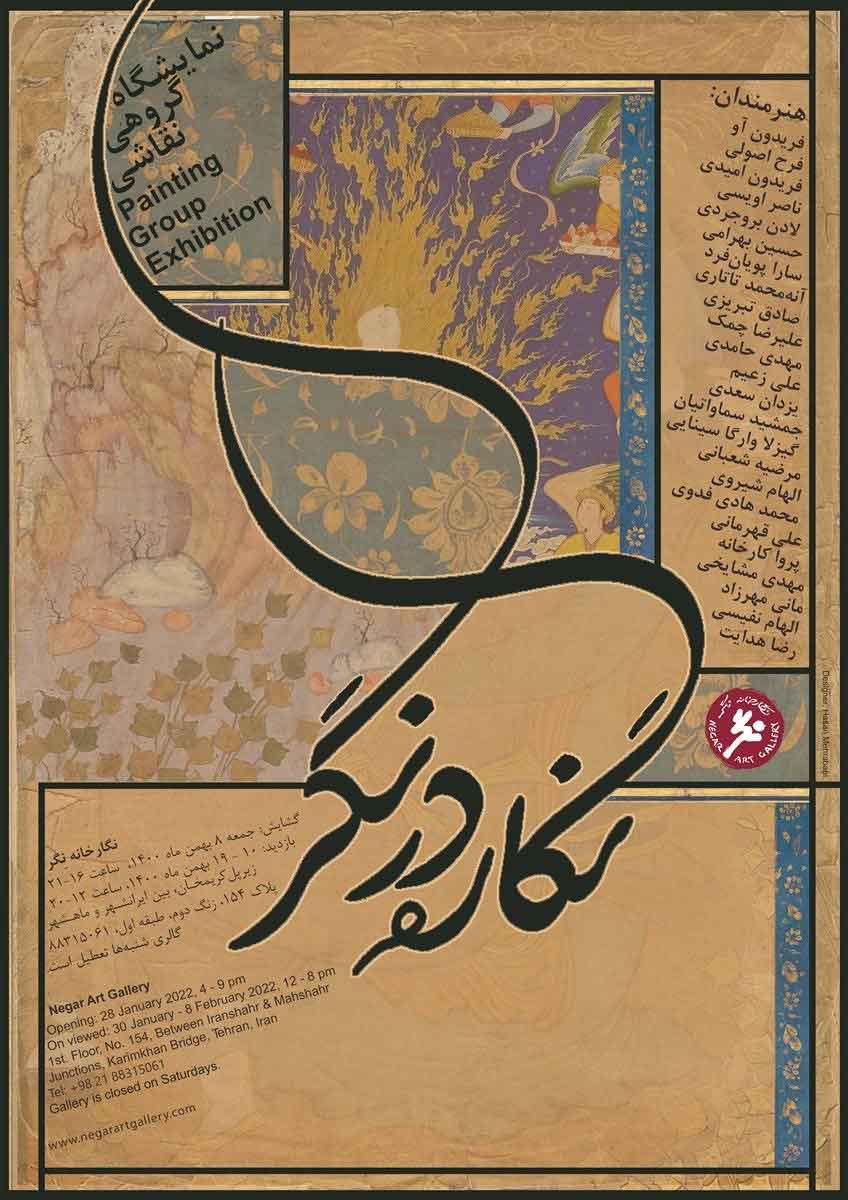 نمایشگاه
گروهی
نقاشی
Painting
Group
Exhibition
هنرمندان:
فریدون آو
فرح اصولی
فریدون امیدی
ناصر اویسی
لادن بروجردی
حسین بهرامی
سارا پویان‌فرد
آنه‌محمد تاتاری
صادق تبریزی
علیرضا چمک
مهدی حامدی
علی زعیم
یزدان سعدی
جمشید سماواتیان
گیزلا وارگا سینایی
مرضیه شعبانی
الهام شیروی
محمد هادی فدوی
علی قهرمانی
پروا کارخانه
مهدی مشایخی
مانی مهرزاد
الهام نفیسی
رضا هدایت
NEGAR ART GALLERY
Designer: Hasan Mehrababi
نگاره در نگر
نگارخانه نگر
گشایش: جمعه ۸ بهمن ماه ۱۴۰۰. ساعت ۱۶-۲۱
بازدید: ۱۰ - ۱۹ بهمن ماه ۱۴۰۰. ساعت ۱۲-۲۰
زیرپل کریمخان، بین ایرانشهر و ماهشهر
پلاک ۱۵۴. زنگ دوم، طبقه اول، ۸۸۳۱۵۰۶۱
گالری شنبه‌ها تعطیل است
Negar Art Gallery
Opening: 28 January 2022, 4 - 9 pm
On viewed: 30 January - 8 February 2022, 12 - 8 pm
1st. Floor, No. 154, Between Iranshahr & Mahshahr
Junctions, Karimkhan Bridge, Tehran, Iran
Tel: +98 21 88315061
Gallery is closed on Saturdays.
www.negarartgallery.com